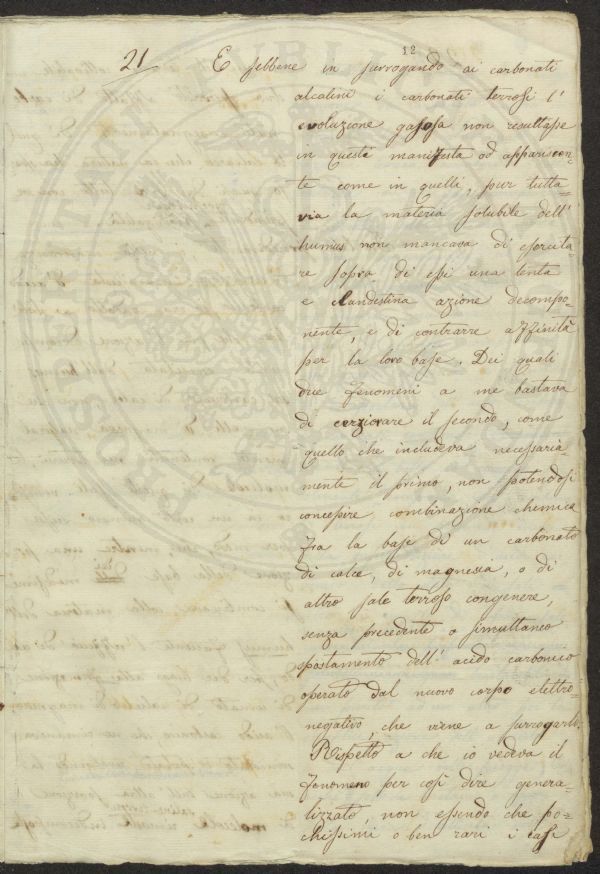 12
21 E sebbene in surrogando ai carbonati
alcalini i carbonati terrosi l'
evoluzione gasosa non resultasse
in questi manifesta od appariscen=
te come in quelli, pur tutta=
via la materia solubile dell'
humus non mancava di esercita=
re sopra di essi una lenta
e clandestina azione decompo=
nente, e di contrarre affinità
per la loro base. Dei quali
due fenomeni a me bastava
di cerziorare il secondo, come
quello che includeva necessaria=
mente il primo, non potendosi
concepire combinazione chemica
fra la base di un carbonato
di calce, di magnesia, o di
altro sale terroso congenere,
senza precedente o simultaneo
spostamento dell' acido carbonico
operato dal nuovo corpo elettro=
negativo, che viene a surrogarlo.
Rispetto a che io vedeva il
fenomeno per così dire genera=
lizzato, non essendo che po=
chissimi o ben rari i casi